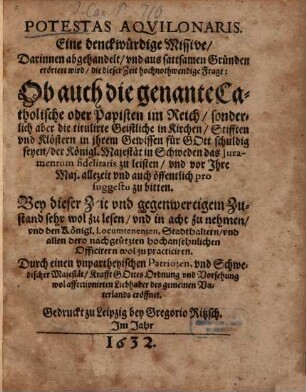 POTESTAS AQVILONARIS.
Eine denckwürdige Missive/
Darinnen abgehandelt/ vnd aus sattsamen Gründen
erörtert wird/ die dieser Zeit hochnothwendige Frage:
Ob auch die genante Ca-
tholische oder Papisten im Reich/ sonder-
lich aber die titulirte Geistliche in Kirchen/ Stifften
vnd Klöstern in jhrem Gewissen für GOtt schuldig
seyen/ der Königl. Majestät in Schweden das Jura-
mentum fidelitatis zu leisten/ vnd vor Jhre
Maj. allezeit vnd auch öffentlich pro
suggestu zu bitten.
Bey dieser Zeit vnd gegenwertigem Zu-
stand sehr wol zu lesen/ vnd in acht zu nehmen/
vnd den Königl. Locumtenenten, Stadthaltern/ vnd
allen dero nachgesetzten hochansehnlichen
Officirern wol zu practiciren.
Durch einen vnpartheyischen Patrioten, vnd Schwe-
discher Majestät/ Krafft GOttes Ordnung vnd Vorsehung
wol affectionirten Liebhaber des gemeinen Va-
terlands eröffnet.
Gedruckt zu Leipzig bey Gregorio Ritzsch.
Im Jahr
1632.